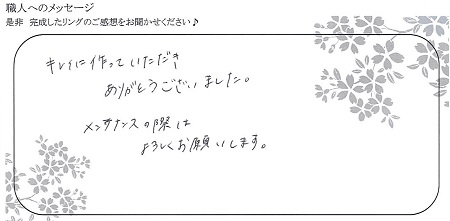 職人へのメッセージ
是非 完成したリングのご感想をお聞かせください♪
キレイに作っていただき
ありがとうございました。
メンテナンスの際は
よろしくお願いします。